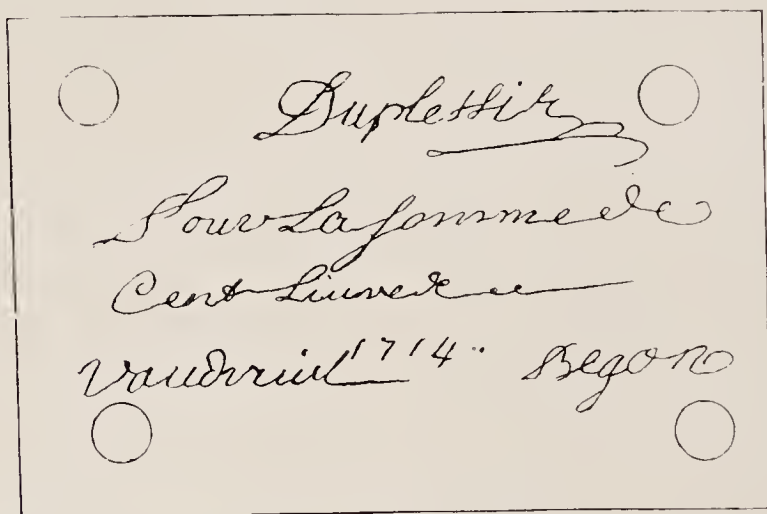 Duplessis
Pour La somme de
Cent Liuvre
Vaudreuil 1714 .. Begon